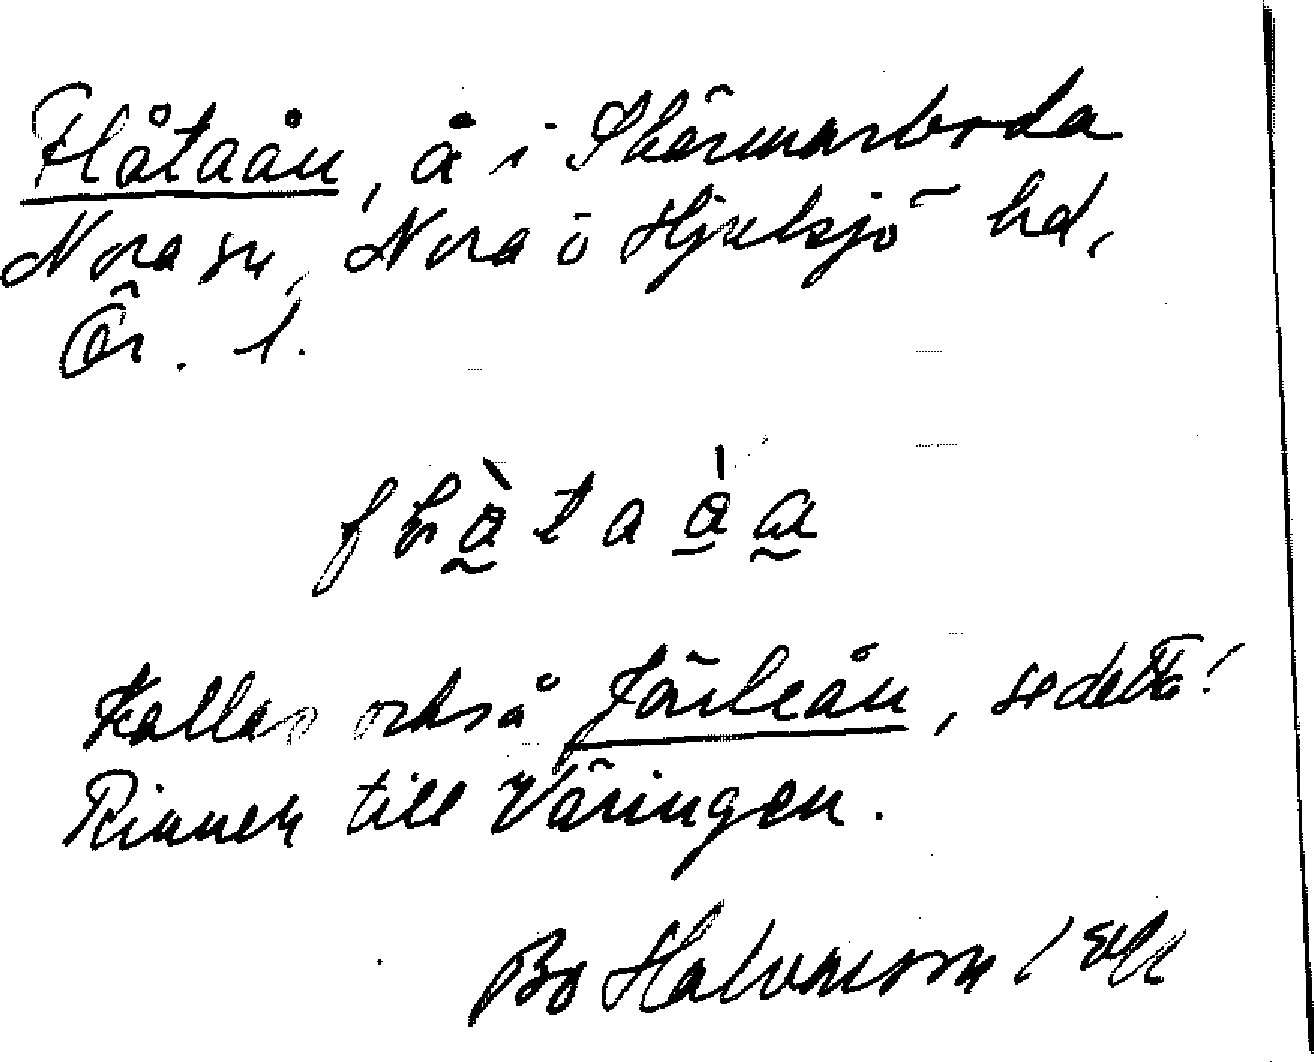 Flåtaån, å i Skärmarboda
Nora sn, Nora o Hjulsjö hd,
Ör. l.
Kallas också Järleån, se detta!
Rinner till Väringen.
Bo Halvarsson